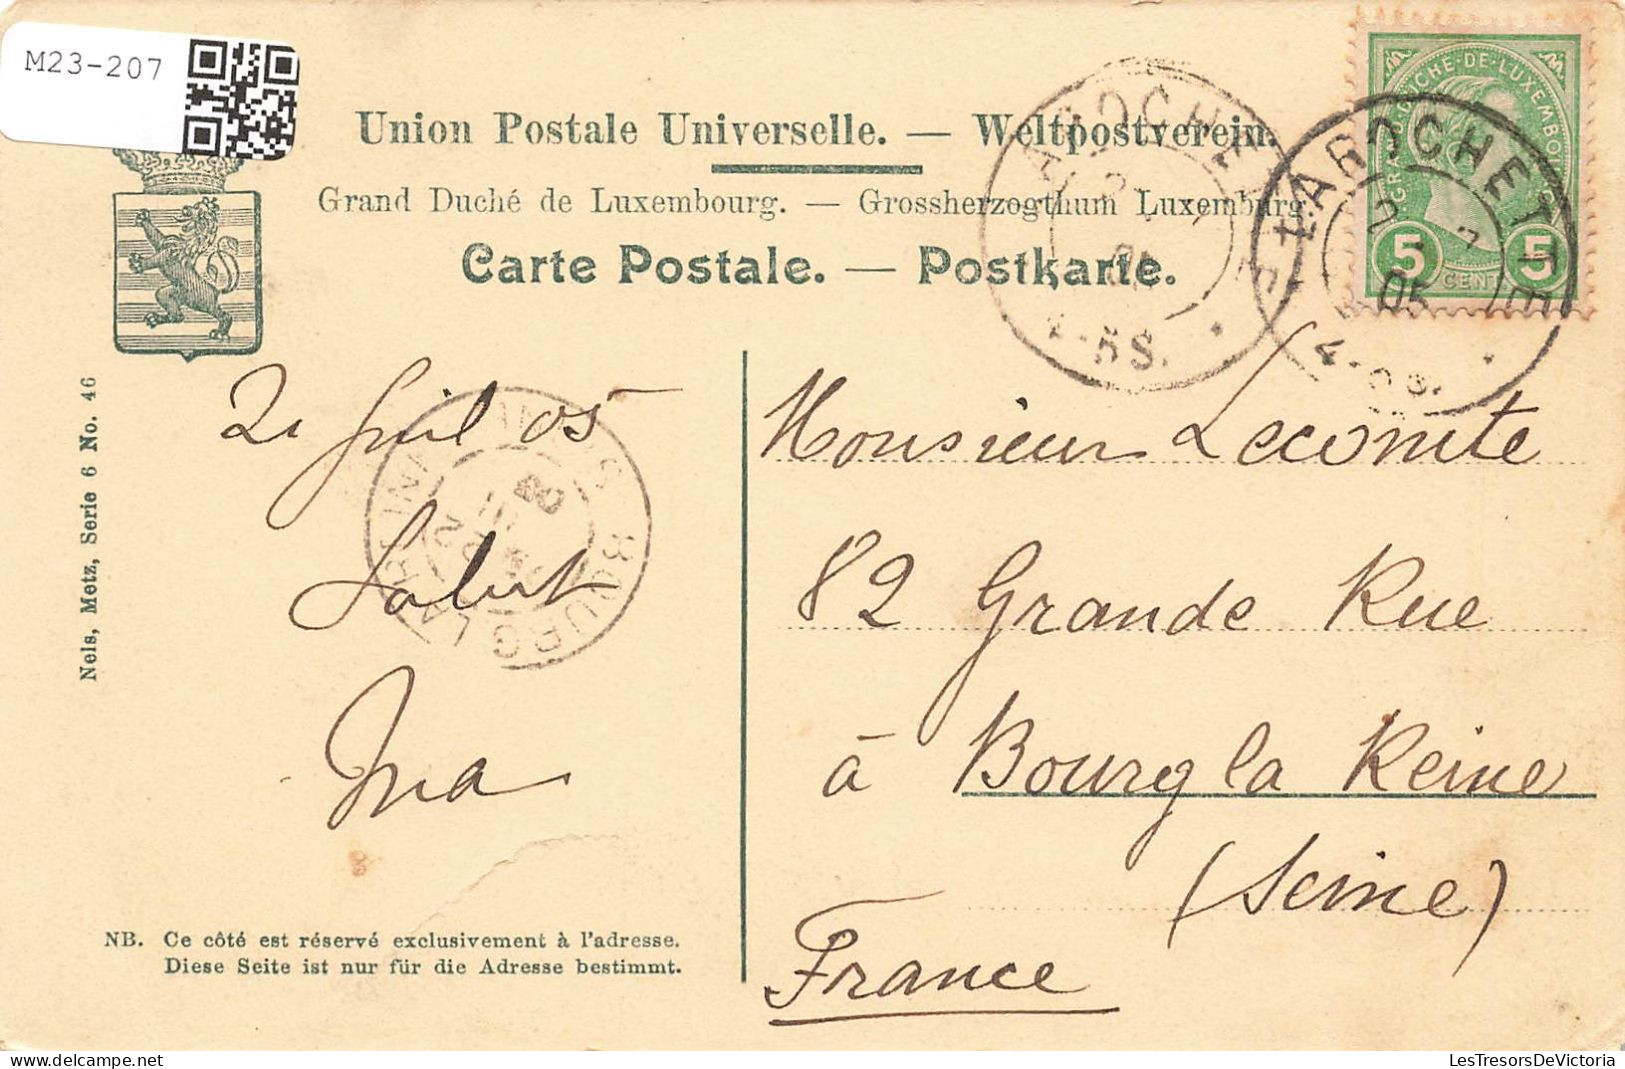 M23-207
Union Postale Universelle. — Weltpostverein.
Grand Duché de Luxembourg. — Grossherzogthum Luxemburg.
Carte Postale. — Postkarte.
GRAND DUCHÉ DE LUXEMBOURG
5 CENT 5
LAROCHETTE
05
Nels, Metz, Serie 6 No. 46
21 Juil 05
Salut
Monsieur Lecomte
82 Grande Rue
à Bourg la Reine
(Seine)
France
BOURG LA REINE
NB. Ce côté est réservé exclusivement à l'adresse.
Diese Seite ist nur für die Adresse bestimmt.
LesTresorsDeVictoria
www.delcampe.net